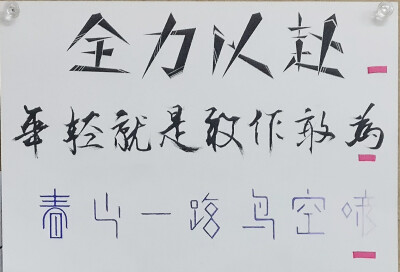 全力以赴
年轻就是敢作敢为
春山一路鸟空啼